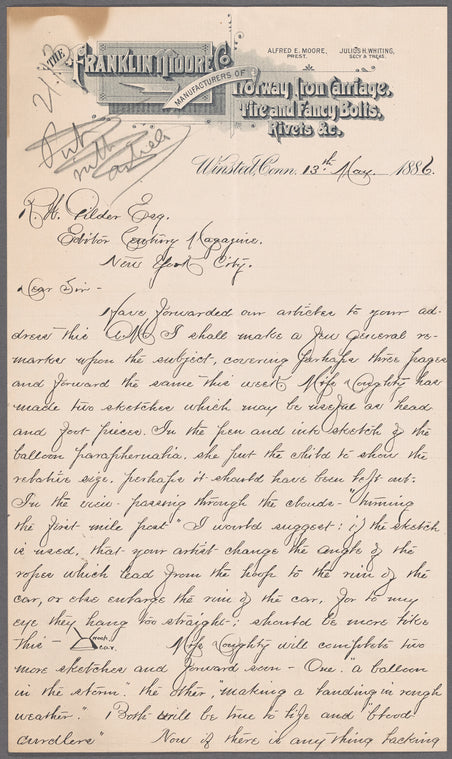 THE
FRANKLIN MOORE CO
MANUFACTURERS OF
Norway Iron Carriage,
Tire and Fancy Bolts,
Rivets &c.
ALFRED E. MOORE,
PREST.
JULIUS H. WHITING,
SECY & TREAS.
Put
with
article
Winsted, Conn. 13th May 1886.
R. W. Gilder Esq.
Editor Century Magazine.
New York City.
Dear Sir -
Have forwarded our articles to your ad-
dress this A.M. I shall make a few general re-
marks upon the subject, covering perhaps three pages
and forward the same this week. Miss Doughty has
made two sketches which may be useful as head
and foot pieces. In the pen and ink sketch of the
balloon paraphernalia, she put the child to show the
relative size, perhaps it should have been left out.
In the view - passing through the clouds - "turning
the first mile post" I would suggest: if the sketch
is used, that your artist change the angle of the
ropes which lead from the hoop to the rim of the
car, or else enlarge the rim of the car, for to my
eye they hang too straight; should be more like
this - hoop. car. Miss Doughty will complete two
more sketches and forward soon - One. "a balloon
in the storm." the other, "making a landing in rough
weather." Both will be true to life and "blood
curdlers" Now if there is any thing lacking